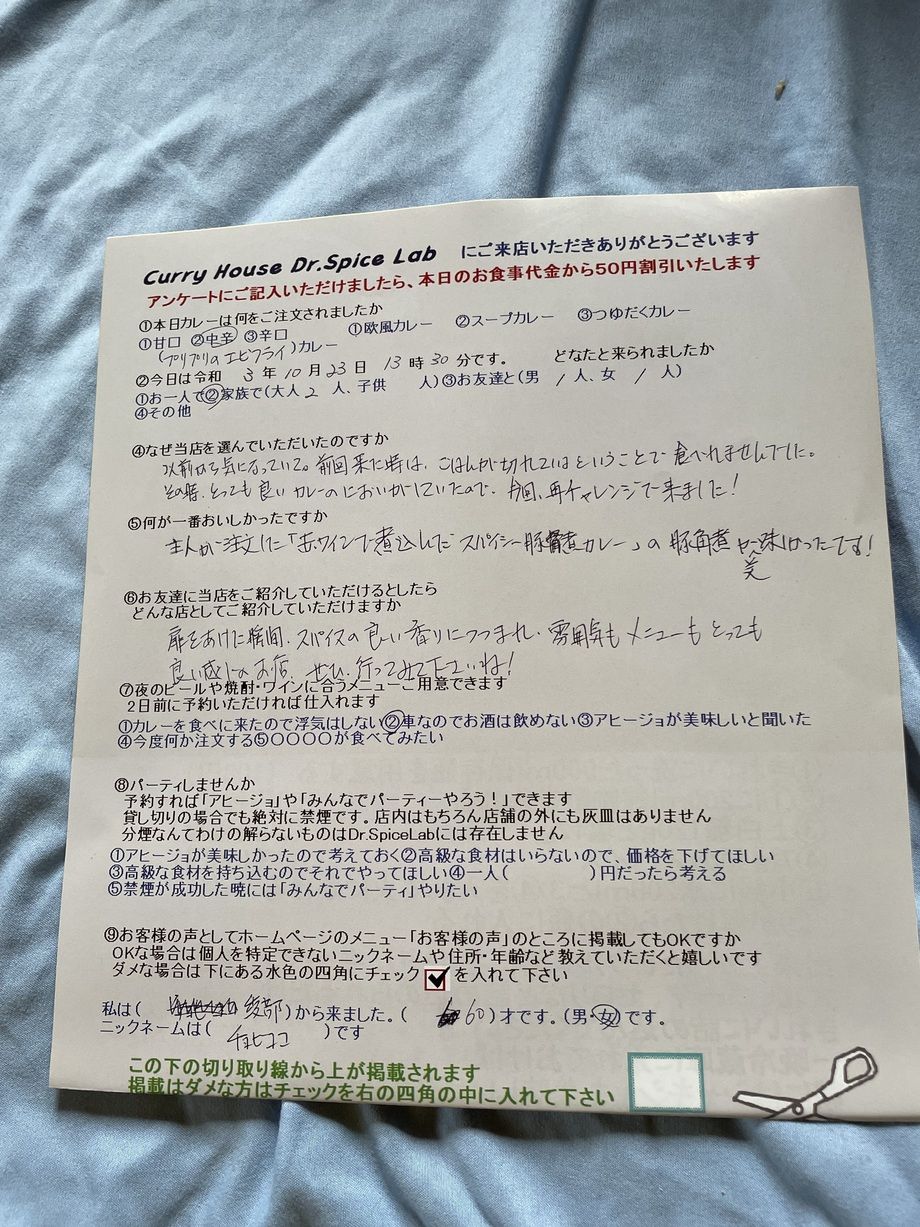 Curry House Dr.Spice Lab にご来店いただきありがとうございます
アンケートにご記入いただけましたら、本日のお食事代金から50円割引いたします
①本日カレーは何をご注文されましたか
①甘口 ②中辛 ③辛口 ①欧風カレー ②スープカレー ③つゆだくカレー
(プリプリのエビフライ)カレー
②今日は令和 3 年 10 月 23 日 13 時 30 分です。 どなたと来られましたか
①お一人で②家族で(大人 2 人、子供 人)③お友達と(男 1 人、女 1 人)
④その他
④なぜ当店を選んでいただいたのですか
以前から気になっていて。前回来た時は、ごはんが切れているということで食べれませんでした。
その時、とっても良いカレーのにおいがしていたので、今回、再チャレンジで来ました!
⑤何が一番おいしかったですか
主人が注文した「赤ワインで煮込んだスパイシー豚角煮カレー」の豚角煮が美味しかったです!
⑥お友達に当店をご紹介していただけるとしたら
どんな店としてご紹介していただけますか
扉をあけた瞬間、スパイスの良い香りにつつまれ、雰囲気もメニューもとっても
良い感じのお店、ぜひ、行ってみて下さいね!
⑦夜のビールや焼酎・ワインに合うメニューご用意できます
2日前に予約いただければ仕入れます
①カレーを食べに来たので浮気はしない②車なのでお酒は飲めない③アヒージョが美味しいと聞いた
④今度何か注文する⑤〇〇〇〇が食べてみたい
⑧パーティしませんか
予約すれば「アヒージョ」や「みんなでパーティーやろう!」できます
貸し切りの場合でも絶対に禁煙です。店内はもちろん店舗の外にも灰皿はありません
分煙なんてわけの解らないものはDr.SpiceLabには存在しません
①アヒージョが美味しかったので考えておく②高級な食材はいらないので、価格を下げてほしい
③高級な食材を持ち込むのでそれでやってほしい④一人( )円だったら考える
⑤禁煙が成功した暁には「みんなでパーティ」やりたい
⑨お客様の声としてホームページのメニュー「お客様の声」のところに掲載してもOKですか
OKな場合は個人を特定できないニックネームや住所・年齢など教えていただくと嬉しいです
ダメな場合は下にある水色の四角にチェック を入れて下さい
私は( 綾部)から来ました。( 60)才です。(男・女)です。
ニックネームは( チョビコ )です
この下の切り取り線から上が掲載されます
掲載はダメな方はチェックを右の四角の中に入れて下さい